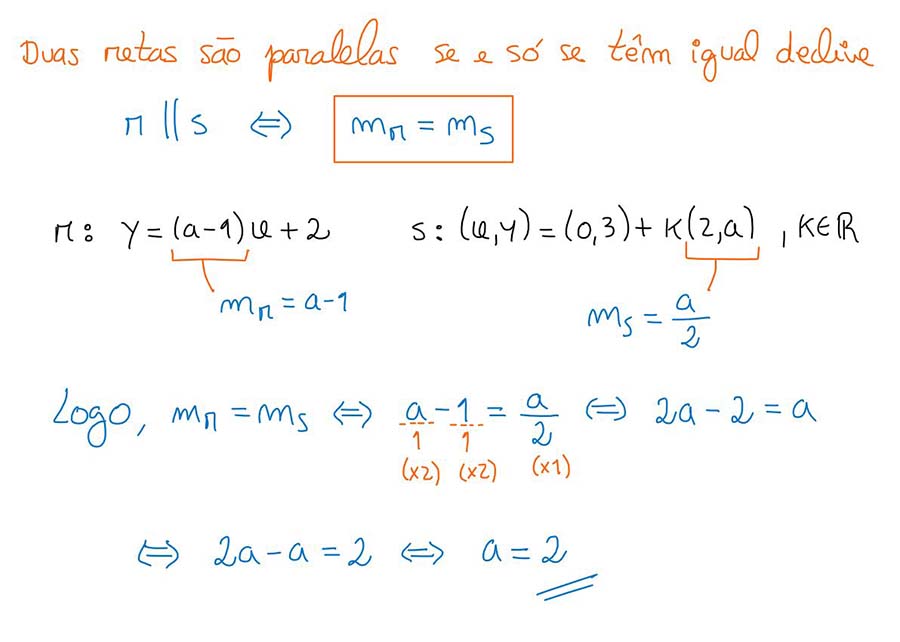 Duas retas são paralelas se e só se têm igual declive
r || s ⇔ mᵣ = mₛ
r: y = (a-1)x + 2 s: (x,y) = (0,3) + K(2,a) , K∈ℝ
mᵣ = a-1 mₛ = a/2
Logo, mᵣ = mₛ ⇔ a/1 - 1/1 = a/2 ⇔ 2a - 2 = a
(x2) (x2) (x1)
⇔ 2a - a = 2 ⇔ a = 2